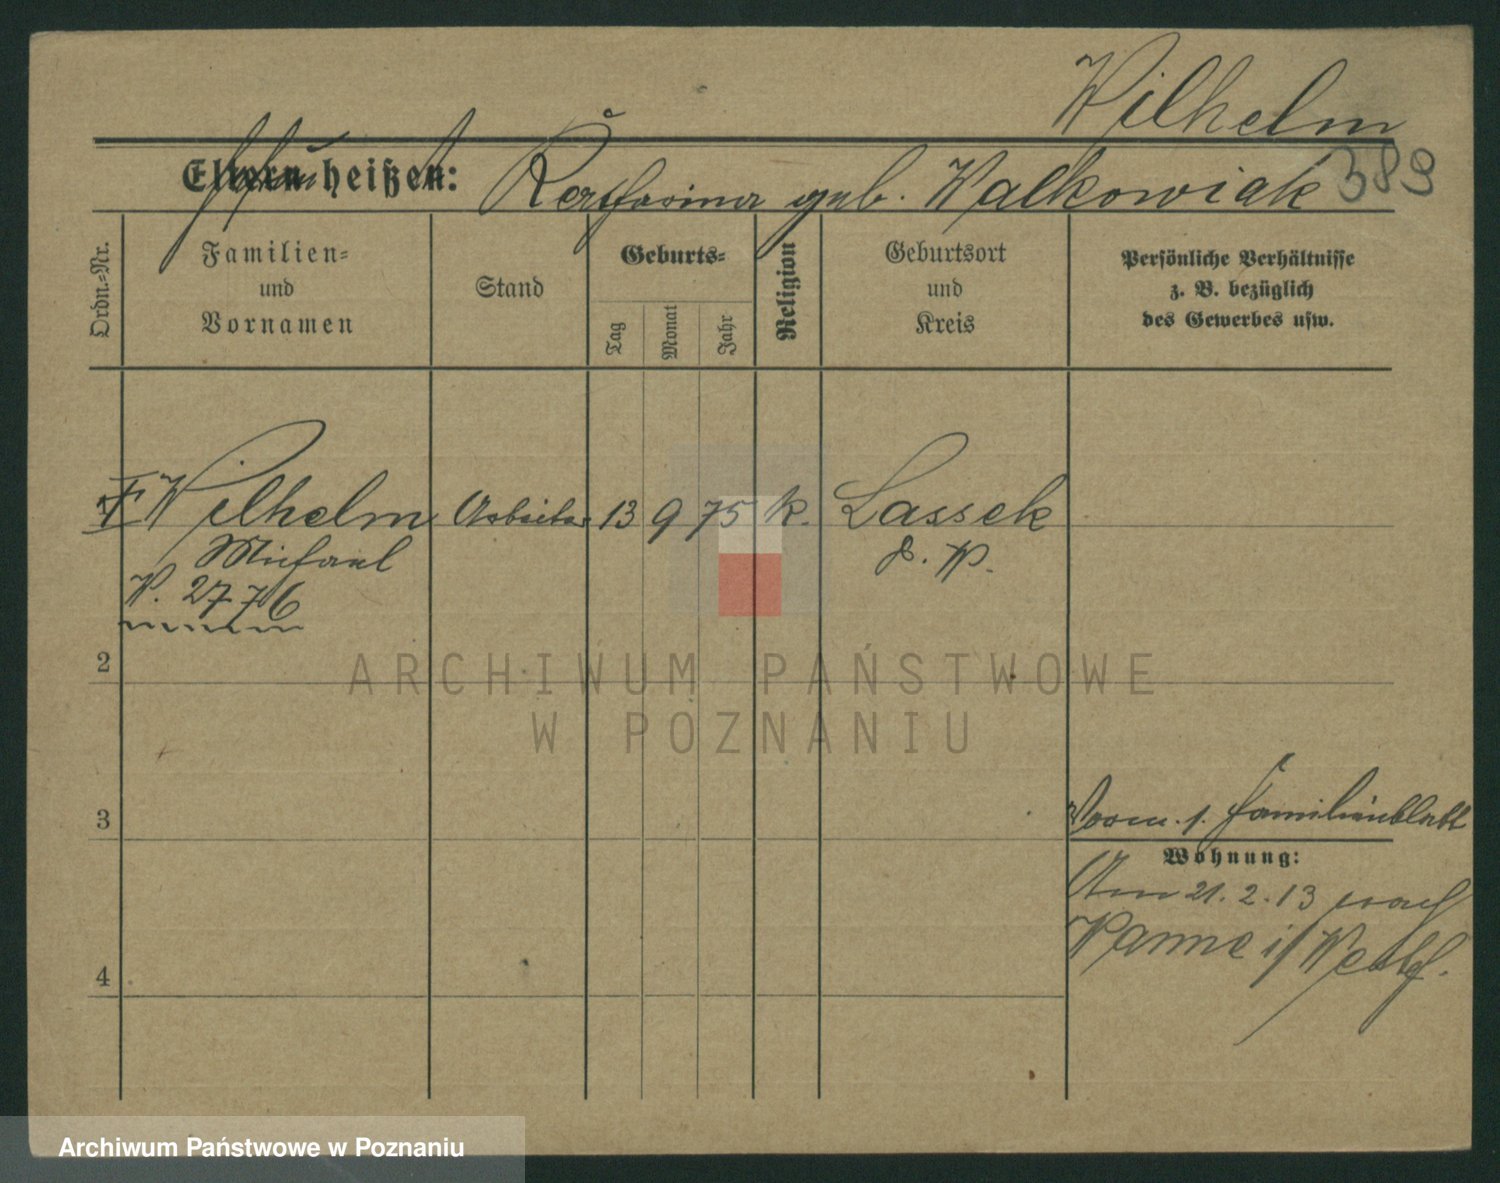 Wilhelm
Eltern heißen: Katharina geb. Walkowiak 389
Ordn.-Nr.
Familien- und Vornamen
Stand
Geburts-
Tag
Monat
Jahr
Religion
Geburtsort und Kreis
Persönliche Verhältnisse
z. B. bezüglich
des Gewerbes usw.
Wilhelm Arbeiter 13 9 75 k. Lassek
Michael P. W.
W. 2776
2
3
4
Familienblatt
Wohnung:
Am 21.2.13 nach
Wanne i/Westf.
ARCHIWUM PAŃSTWOWE
W POZNANIU
Archiwum Państwowe w Poznaniu